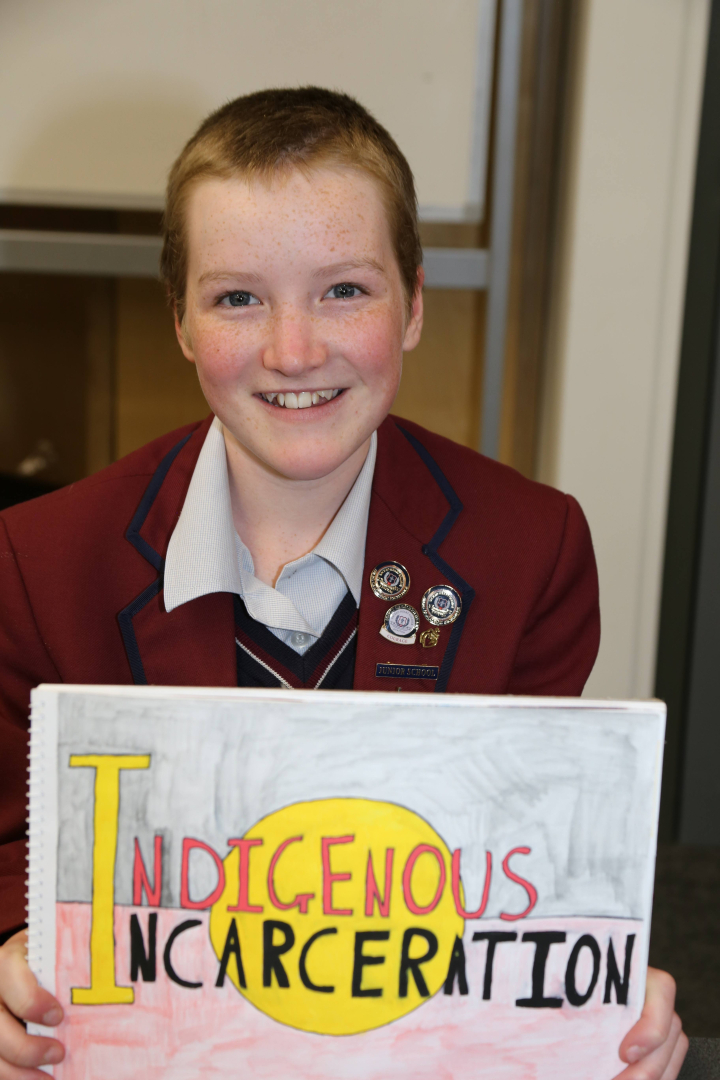 JUNIOR SCHOOL
INDIGENOUS
INCARCERATION